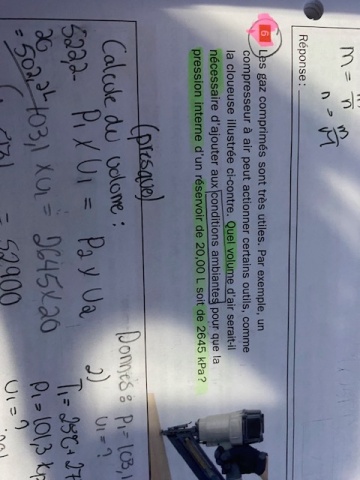 n = m/M
Réponse :
6 Les gaz comprimés sont très utiles. Par exemple, un
compresseur à air peut actionner certains outils, comme
la cloueuse illustrée ci-contre. Quel volume d'air serait-il
nécessaire d'ajouter aux conditions ambiantes pour que la
pression interne d'un réservoir de 20,00 L soit de 2645 kPa?
(presque)
Calcule du volume :
P1 x V1 = P2 x V2
103,1 x V1 = 2645 x 20
= 52900
Donnés : P1 = 103,1
V1 = ?
2)
T1 = 25°C + 27
P1 = 101,3 kP
V1 = ?